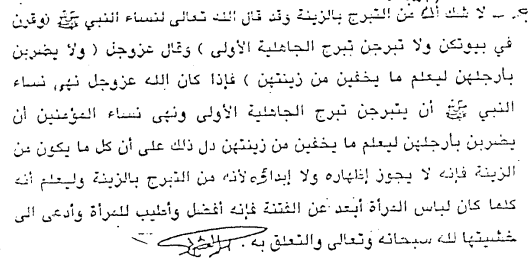 لا شك أنه من التبرج بالزينة وقد قال الله تعالى لنساء النبي ﷺ (وقرن
في بيوتكن ولا تبرجن تبرج الجاهلية الأولى ) وقال عزوجل ( ولا يضربن
بأرجلهن ليعلم ما يخفين من زينتهن ) فإذا كان الله عزوجل نهى نساء
النبي ﷺ أن يتبرجن تبرج الجاهلية الأولى ونهى نساء المؤمنين أن
يضربن بأرجلهن ليعلم ما يخفين من زينتهن دل ذلك على أن كل ما يكون من
الزينة فإنه لا يجوز إظهاره ولا إبداؤه لأنه من التبرج بالزينة وليعلم أنه
كلما كان لباس المرأة أبعد عن الفتنة فإنه أفضل وأطيب للمرأة وأدعى الى
خشيتها لله سبحانه وتعالى والتعلق به .